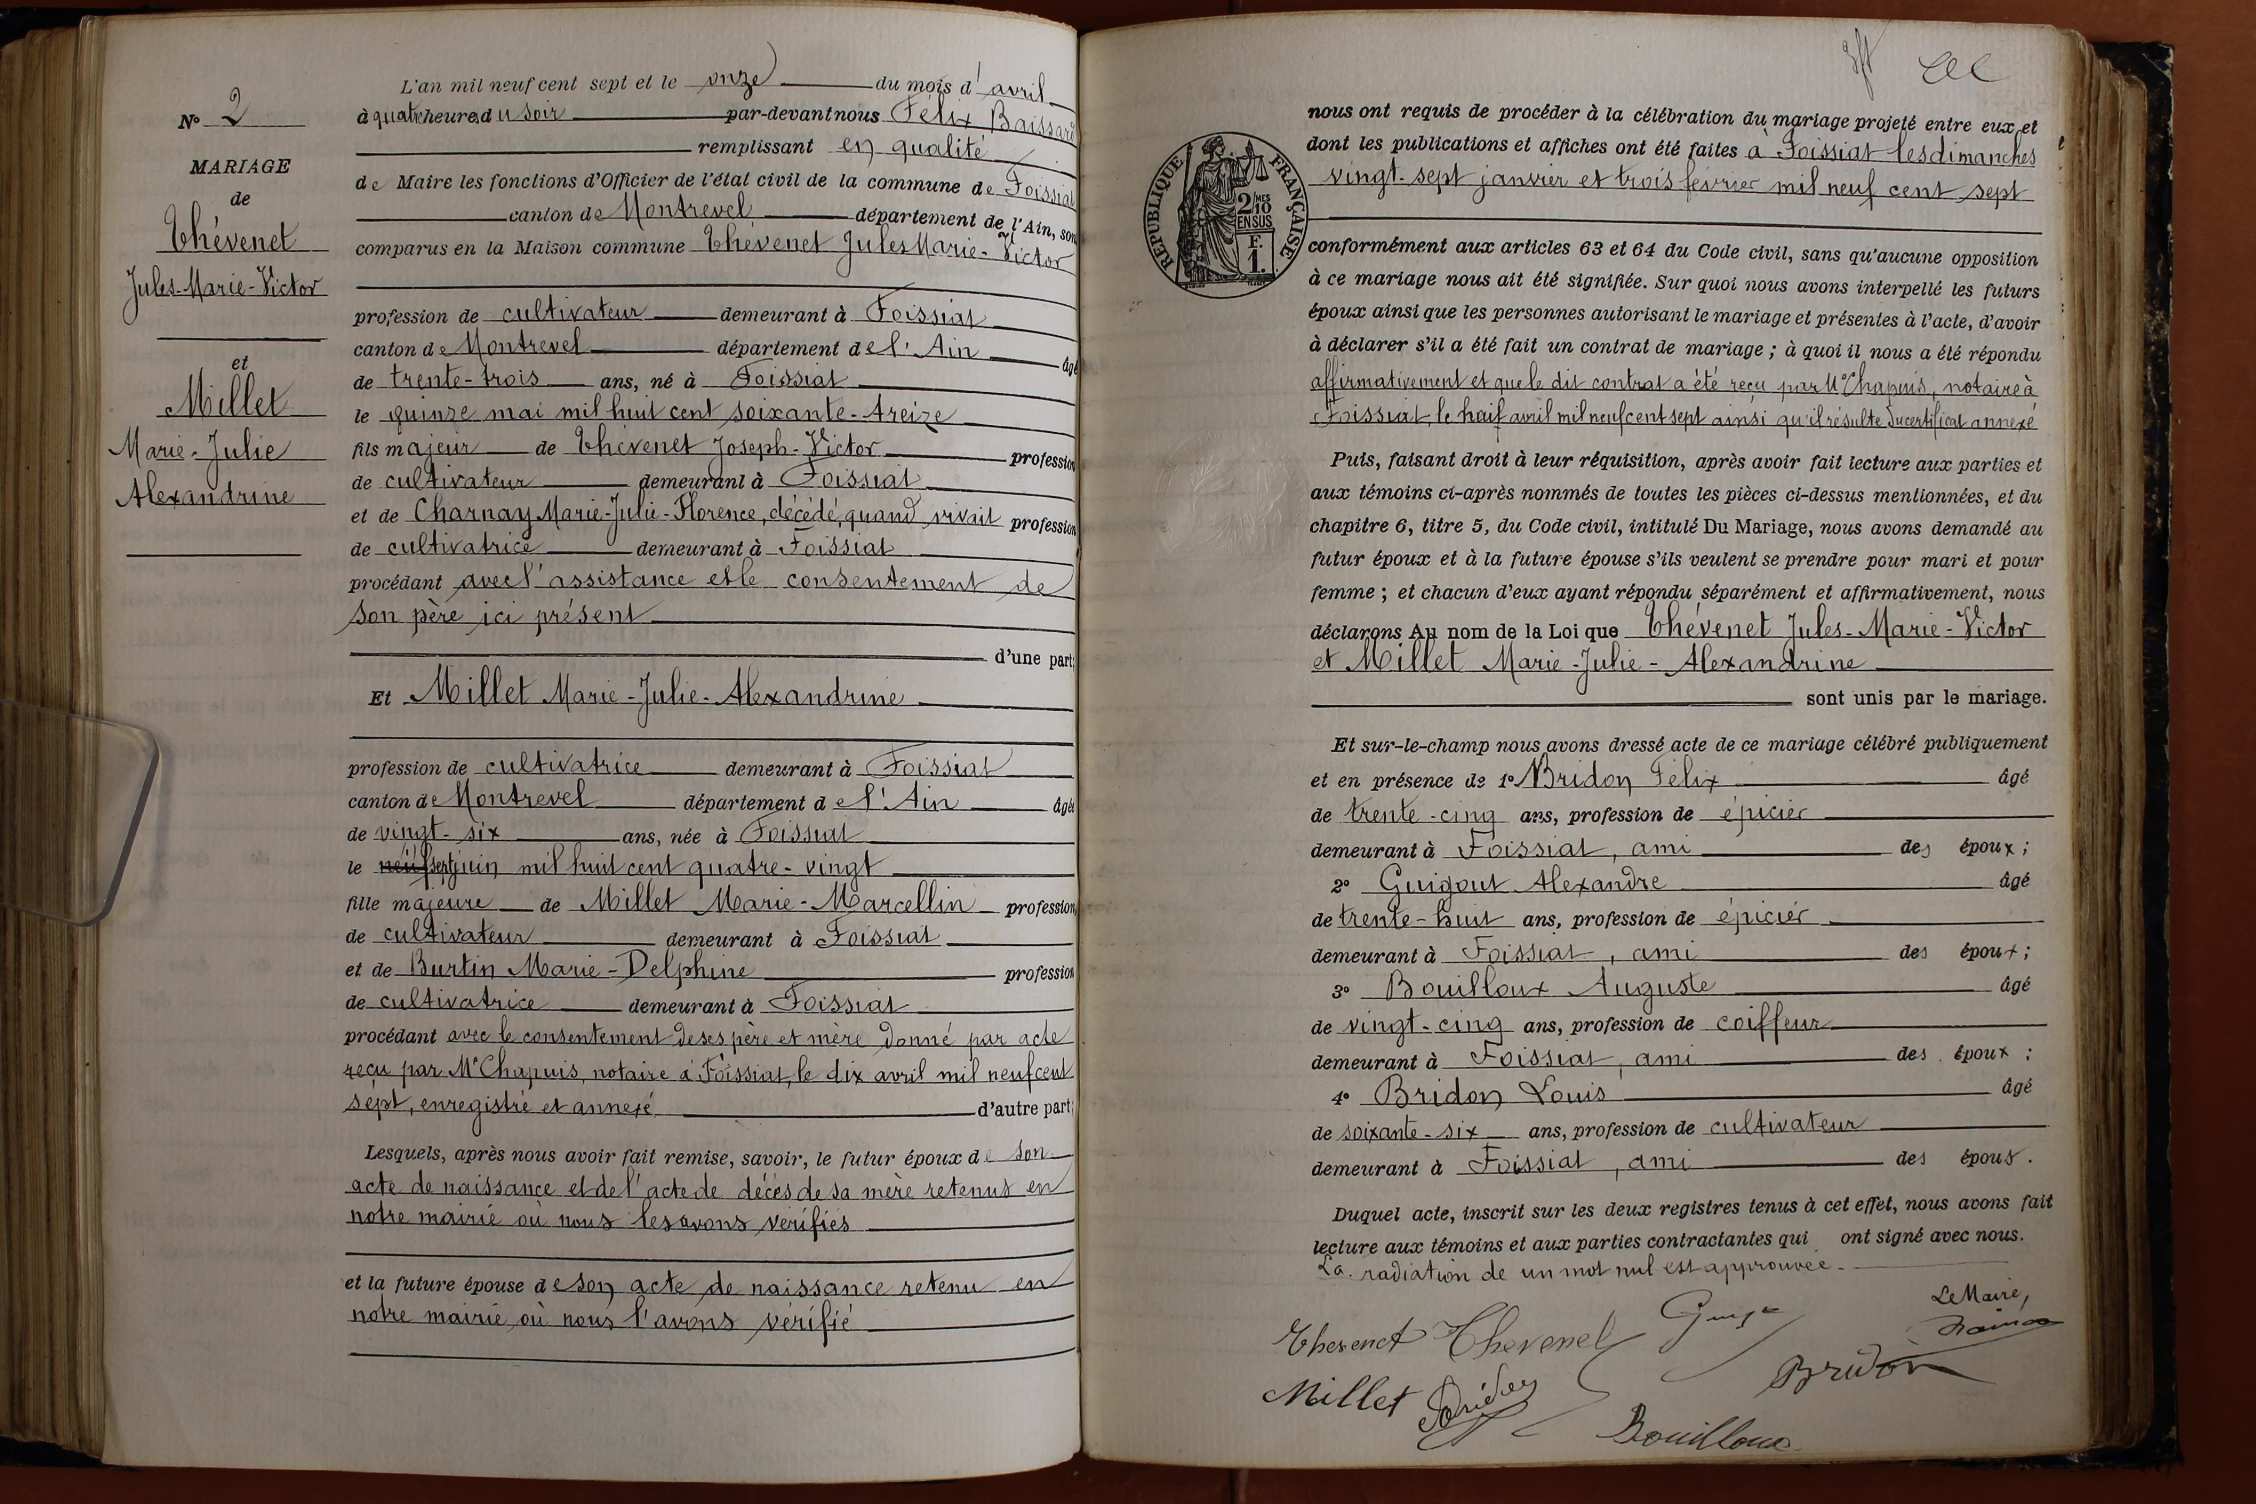 N° 2
MARIAGE
de
Thévenet
Jules-Marie-Victor
et
Millet
Marie-Julie
Alexandrine
L'an mil neuf cent sept et le onze du mois d'avril
à quatre heures du soir par-devant nous Félix Baissard
remplissant en qualité
de Maire les fonctions d'Officier de l'état civil de la commune de Foissiat
canton de Montrevel département de l'Ain, son
comparus en la Maison commune Thévenet Jules Marie-Victor
profession de cultivateur demeurant à Foissiat
canton de Montrevel département de l'Ain âgé
de trente-trois ans, né à Foissiat
le quinze mai mil huit cent soixante-treize
fils majeur de Thévenet Joseph-Victor profession
de cultivateur demeurant à Foissiat
et de Charnay Marie-Julie-Florence, décédé, quand vivait profession
de cultivatrice demeurant à Foissiat
procédant avec l'assistance et le consentement de
son père ici présent
d'une part;
Et Millet Marie-Julie-Alexandrine
profession de cultivatrice demeurant à Foissiat
canton de Montrevel département de l'Ain âgée
de vingt-six ans, née à Foissiat
le neuf sept juin mil huit cent quatre-vingt
fille majeure de Millet Marie-Marcellin profession
de cultivateur demeurant à Foissiat
et de Burtin Marie-Delphine profession
de cultivatrice demeurant à Foissiat
procédant avec le consentement de ses père et mère donné par acte
reçu par Me Chapuis, notaire à Foissiat, le dix avril mil neuf cent
sept, enregistré et annexé d'autre part;
Lesquels, après nous avoir fait remise, savoir, le futur époux de son
acte de naissance et de l'acte de décès de sa mère retenus en
notre mairie où nous les avons vérifiés
et la future épouse de son acte de naissance retenu en
notre mairie où nous l'avons vérifié
RÉPUBLIQUE FRANÇAISE
2 MES
10
EN SUS
F.
1.
nous ont requis de procéder à la célébration du mariage projeté entre eux et
dont les publications et affiches ont été faites à Foissiat les dimanches
vingt-sept janvier et trois février mil neuf cent sept
conformément aux articles 63 et 64 du Code civil, sans qu'aucune opposition
à ce mariage nous ait été signifiée. Sur quoi nous avons interpellé les futurs
époux ainsi que les personnes autorisant le mariage et présentes à l'acte, d'avoir
à déclarer s'il a été fait un contrat de mariage; à quoi il nous a été répondu
affirmativement et que le dit contrat a été reçu par Me Chapuis, notaire à
Foissiat, le avril mil neuf cent sept ainsi qu'il résulte du certificat annexé
Puis, faisant droit à leur réquisition, après avoir fait lecture aux parties et
aux témoins ci-après nommés de toutes les pièces ci-dessus mentionnées, et du
chapitre 6, titre 5, du Code civil, intitulé Du Mariage, nous avons demandé au
futur époux et à la future épouse s'ils veulent se prendre pour mari et pour
femme; et chacun d'eux ayant répondu séparément et affirmativement, nous
déclarons Au nom de la Loi que Thévenet Jules-Marie-Victor
et Millet Marie-Julie-Alexandrine
sont unis par le mariage.
Et sur-le-champ nous avons dressé acte de ce mariage célébré publiquement
et en présence de 1° Bridon Félix âgé
de trente-cinq ans, profession de épicier
demeurant à Foissiat, ami des époux;
2° Guigout Alexandre âgé
de trente-huit ans, profession de épicier
demeurant à Foissiat, ami des époux;
3° Bouilloux Auguste âgé
de vingt-cinq ans, profession de coiffeur
demeurant à Foissiat, ami des époux;
4° Bridon Louis âgé
de soixante-six ans, profession de cultivateur
demeurant à Foissiat, ami des époux.
Duquel acte, inscrit sur les deux registres tenus à cet effet, nous avons fait
lecture aux témoins et aux parties contractantes qui ont signé avec nous.
La radiation de un mot nul est approuvée.
Le Maire,
Thevenet Thevenet
Bridon
Millet Bridon
Bouilloux